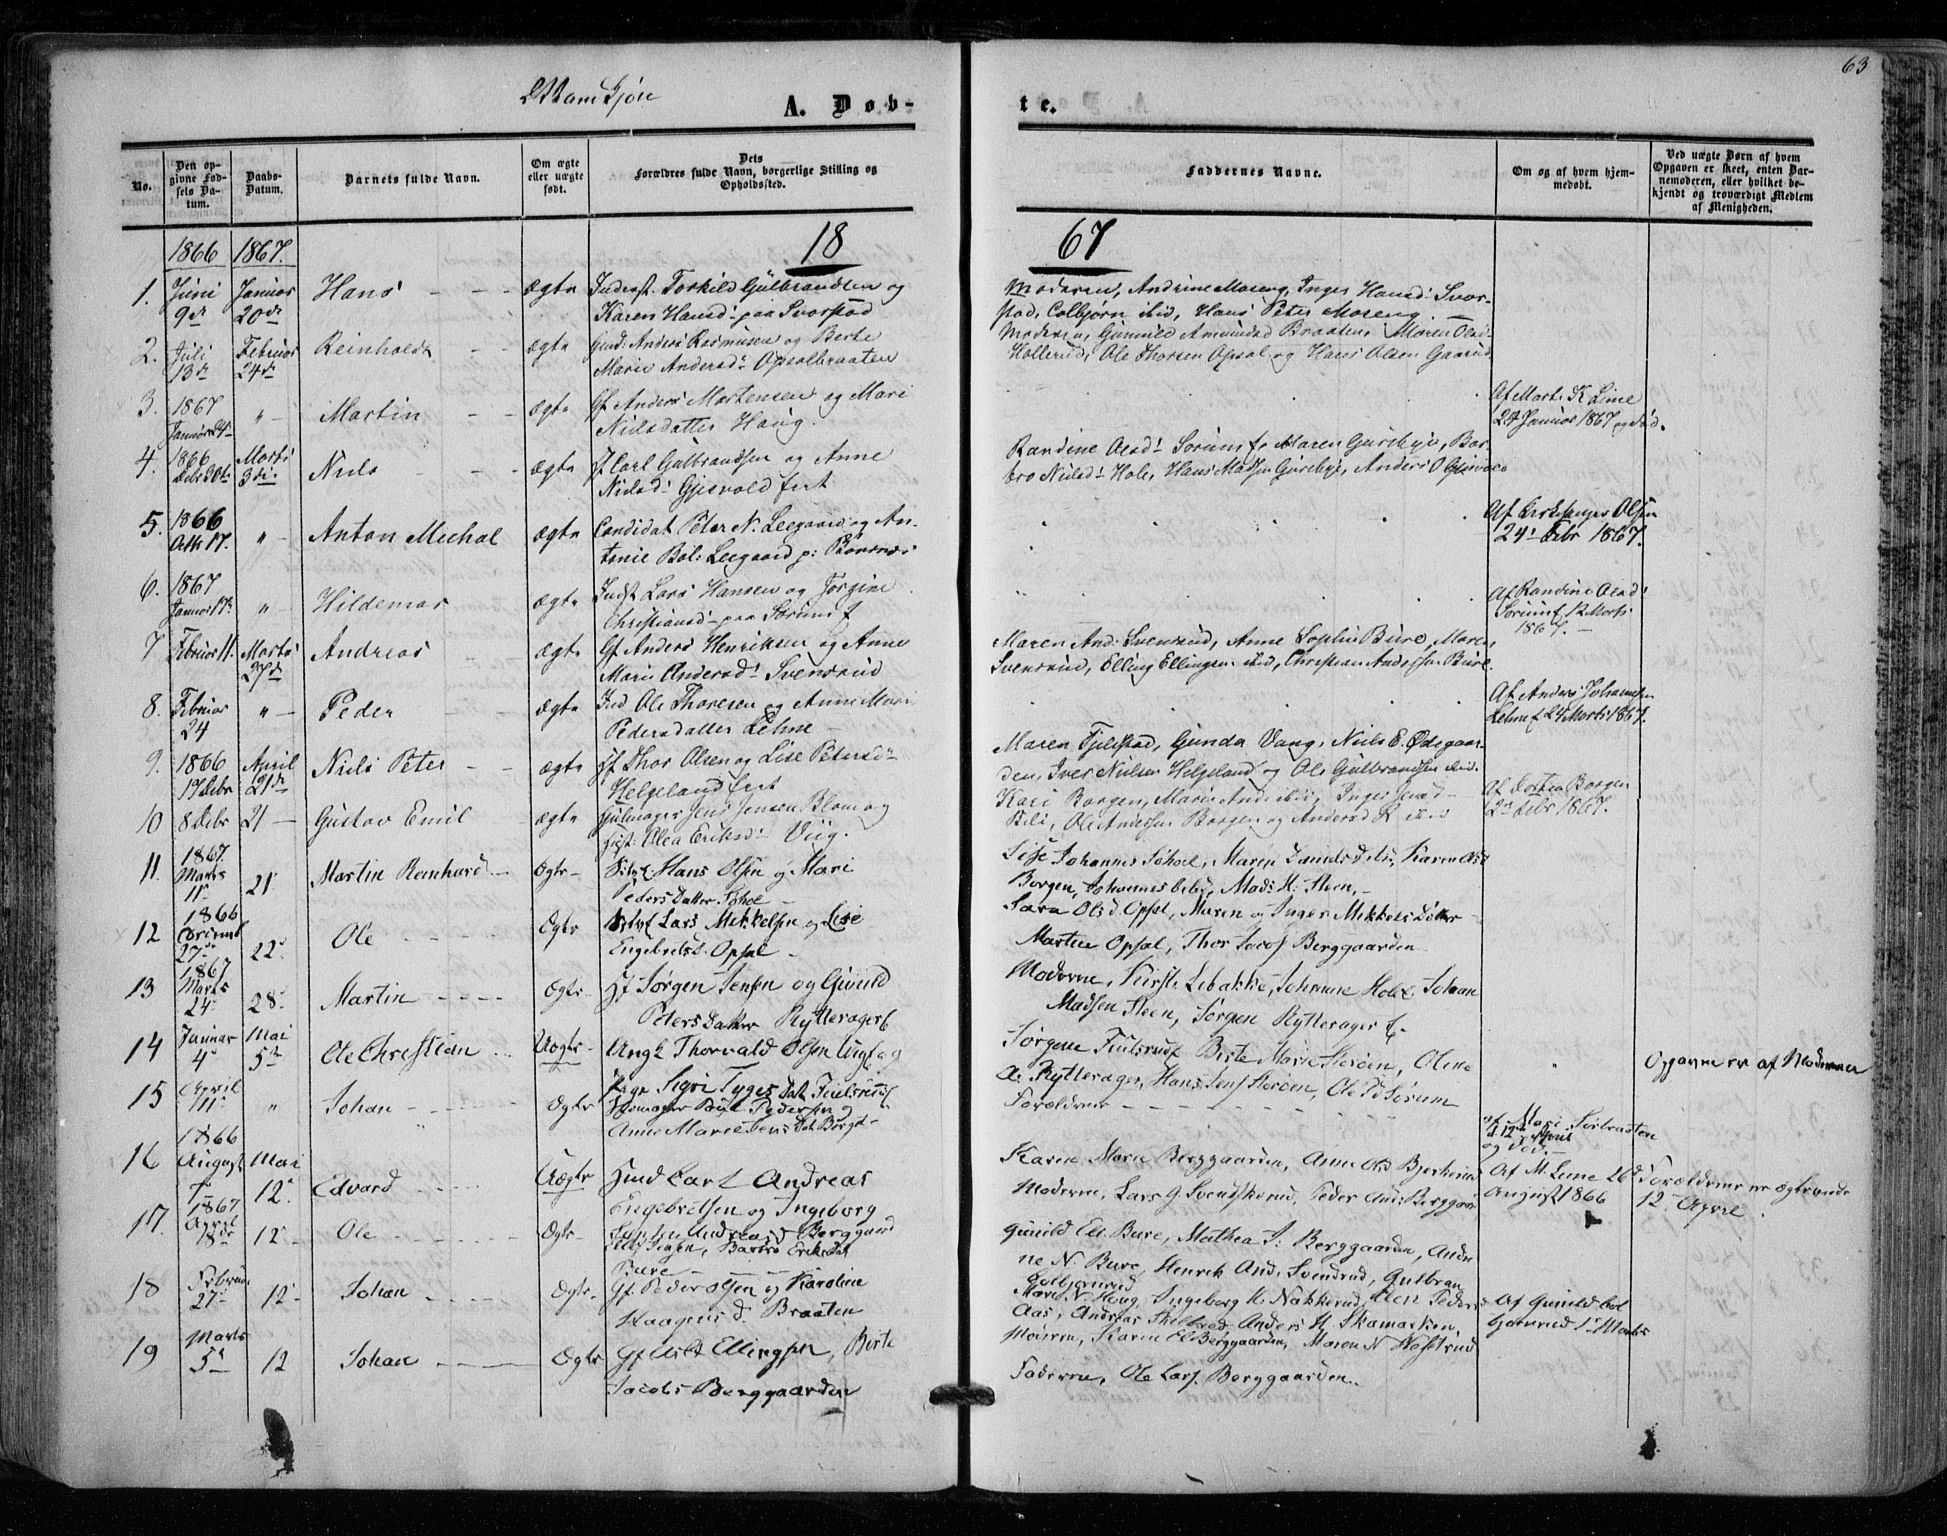 63
A. Døb-
te.
No.
Den op-
givne Fød-
sels Da-
tum.
Daabs-
Datum.
Barnets fulde Navn.
Om ægte
eller uægte
født.
Dets
Forældres fulde Navn, borgerlige Stilling og
Opholdssted.
Faddernes Navne.
Om og af hvem hjem-
medøbt.
Ved uægte Børn af hvem
Opgaven er skeet, enten Bar-
nemoderen, eller hvilket be-
kjendt og troværdigt Medlem
af Menigheden.
1866 1867.
18
67
1. Juni Januar Hans ægte Inderst. Torkild Gulbrandsen og
9de 20de Karen Hansd: paa Svarstad
Moderen, Andrine Moseng, Inger Hansd: Svar-
stad, Colbjørn ibid, Hans Peter Moseng.
2. Juli Februar Reinholdt ægte Anders Rasmusen og Berte
13de 24de Marie Andersd: Opsalbraaten
Moderen, Gunnild Amundsd Braaten, Maren Olsd:
Hollerud, Ole Thorsen Opsal og Hans Olsen Gaarud
3. 1867 " Martin ægte Gf Anders Mortensen og Mari
Januar 24 Nielsdatter Haug.
Af Marth K Lime
24 Januar 1867 og død.
4. 1866 Marts Niels ægte Carl Gulbrandsen og Anne
Debr 30te 3die Nielsd: Gjesvold fert
Randine Olsd: Sørum f, Maren Gurebye, Bar-
bro Nielsd: Hole, Hans Madsen Gurebye, Anders O Gjesvold
5. 1866 " Anton Michal ægte Candidat Peter N. Leegaard og An-
Octb 17. tonie Bol: Leegaard p: Bønsnæs
Af Kirkesanger Olsen
24' Febr 1867.
6. 1867 " Hildemar ægte Indst Lars Hansen og Jorgine
Januar 17. Christiansd: paa Sørum f
Af Randine Olsd:
Sørum f 12 Marts
1867.
7 Februar 11. Marts Andreas ægte Gf Anders Henriksen og Anne
27de Marie Andersd: Svensrud
Maren And: Svensrud, Anne Sophie Bure, Maren
Svensrud, Elling Ellingsen ibid, Christian Andersen Bure.
8. Februar " Peder ægte Ind Ole Thoresen og Anne Mari
24 Pedersdatter Lehne
Af Anders Johannesen
Lehne f 24 Marts 1867.
9. 1866 April Niels Peter ægte Thor Olsen og Lise Petersd:
19 Debr 21de Helgeland fert
Maren Fjelstad, Gunda Vang, Niels E. Ødegaar-
den, Iver Nielsen Helgeland og Ole Gulbrandsen ibid.
10 8 Debr 21 Gustav Emil ægte Jens Jensen Blom og
Olea Eriksd: Viig.
Kari Borgen, Marie And: ibid, Inger
Ole Andersen Borgen og
Af Borgen
1867.
11. 1867. Marts 11 21 Martin Reinhard Ægte Hans Olsen og Mari
Pedersdatter Søhol
Lise Johannes Søhol, Maren Karen Olsd
Borgen, Johannes ibid, Mads H. Steen,
12 1866 27de 22. Ole Ægte Lars Mikkelsen og Lise
Engebretsd. Opsal
Sara Olsd. Opsal, Maren og Inger Mikkelsdatter
Martin Opsal, Thor Jacobs Berggaarden
13 1867 Marts 24 28 Martin Ægte Jørgen Jensen og Gunild
Petersdatter Rytteragerf
Moderne, Kirsti Libakke, Johanne Hole, Johan
Madsen Steen, Jørgen Rytterager f.
14 Januar Mai Ole Christian Uægte Ungk Thorvald Olsen Viig f og
4 5te Pige Sigri Tygesdat Fiulsrud f
Jørgine Fiulsrud f Birte Marie Storøen, Oline
A: Rytterager, Hans Jens Storøen, Ole P d Sørum
Opgaven er af Moderen
15 April 11 " Johan Ægte Paul Pedersen og
Anne Marie Jens Dat Borge
Forældrene
af Mari Sørbraaten
d 12te April
og død.
16 1866 August Mai 12. Edvard Uægte Carl Andreas
Engebretsen og Ingeborg
Berggaard
Karen Marie Berggaarden, Anne Ols Bjerkerud
Moderne, Lars G Svendskerud, Peder And: Berggaar
Af M. Leine 26de
August 1866
Forældrene er ægteviede
12 April.
17. 1867 April 18de 12 Ole Ægte Jensen, Barbro Eriksdat
Bure
Gunild Ell Bure, Mathea J: Berggaarden, Andr
ne N. Bure, Henrik And. Svendrud, Gulbran
18 Februar 27 12 Johan Ægte Gf. Peder Olsen og Karoline
Haagens d. Braaten
Mari N. Haug, Ingeborg K. Nakkerud, Peders
Aas, Andreas Anders H. Skamarken
Af Gunild Col
bjørnrud 1 Marts
19 Marts 5 12 Johan Ægte Gf Ellingsen, Birte
Jacobs Berggaarden
Moderen, Karen El Berggaarden, Maren N Hafsrud
Faderen, Ole Lars. Berggaarden.